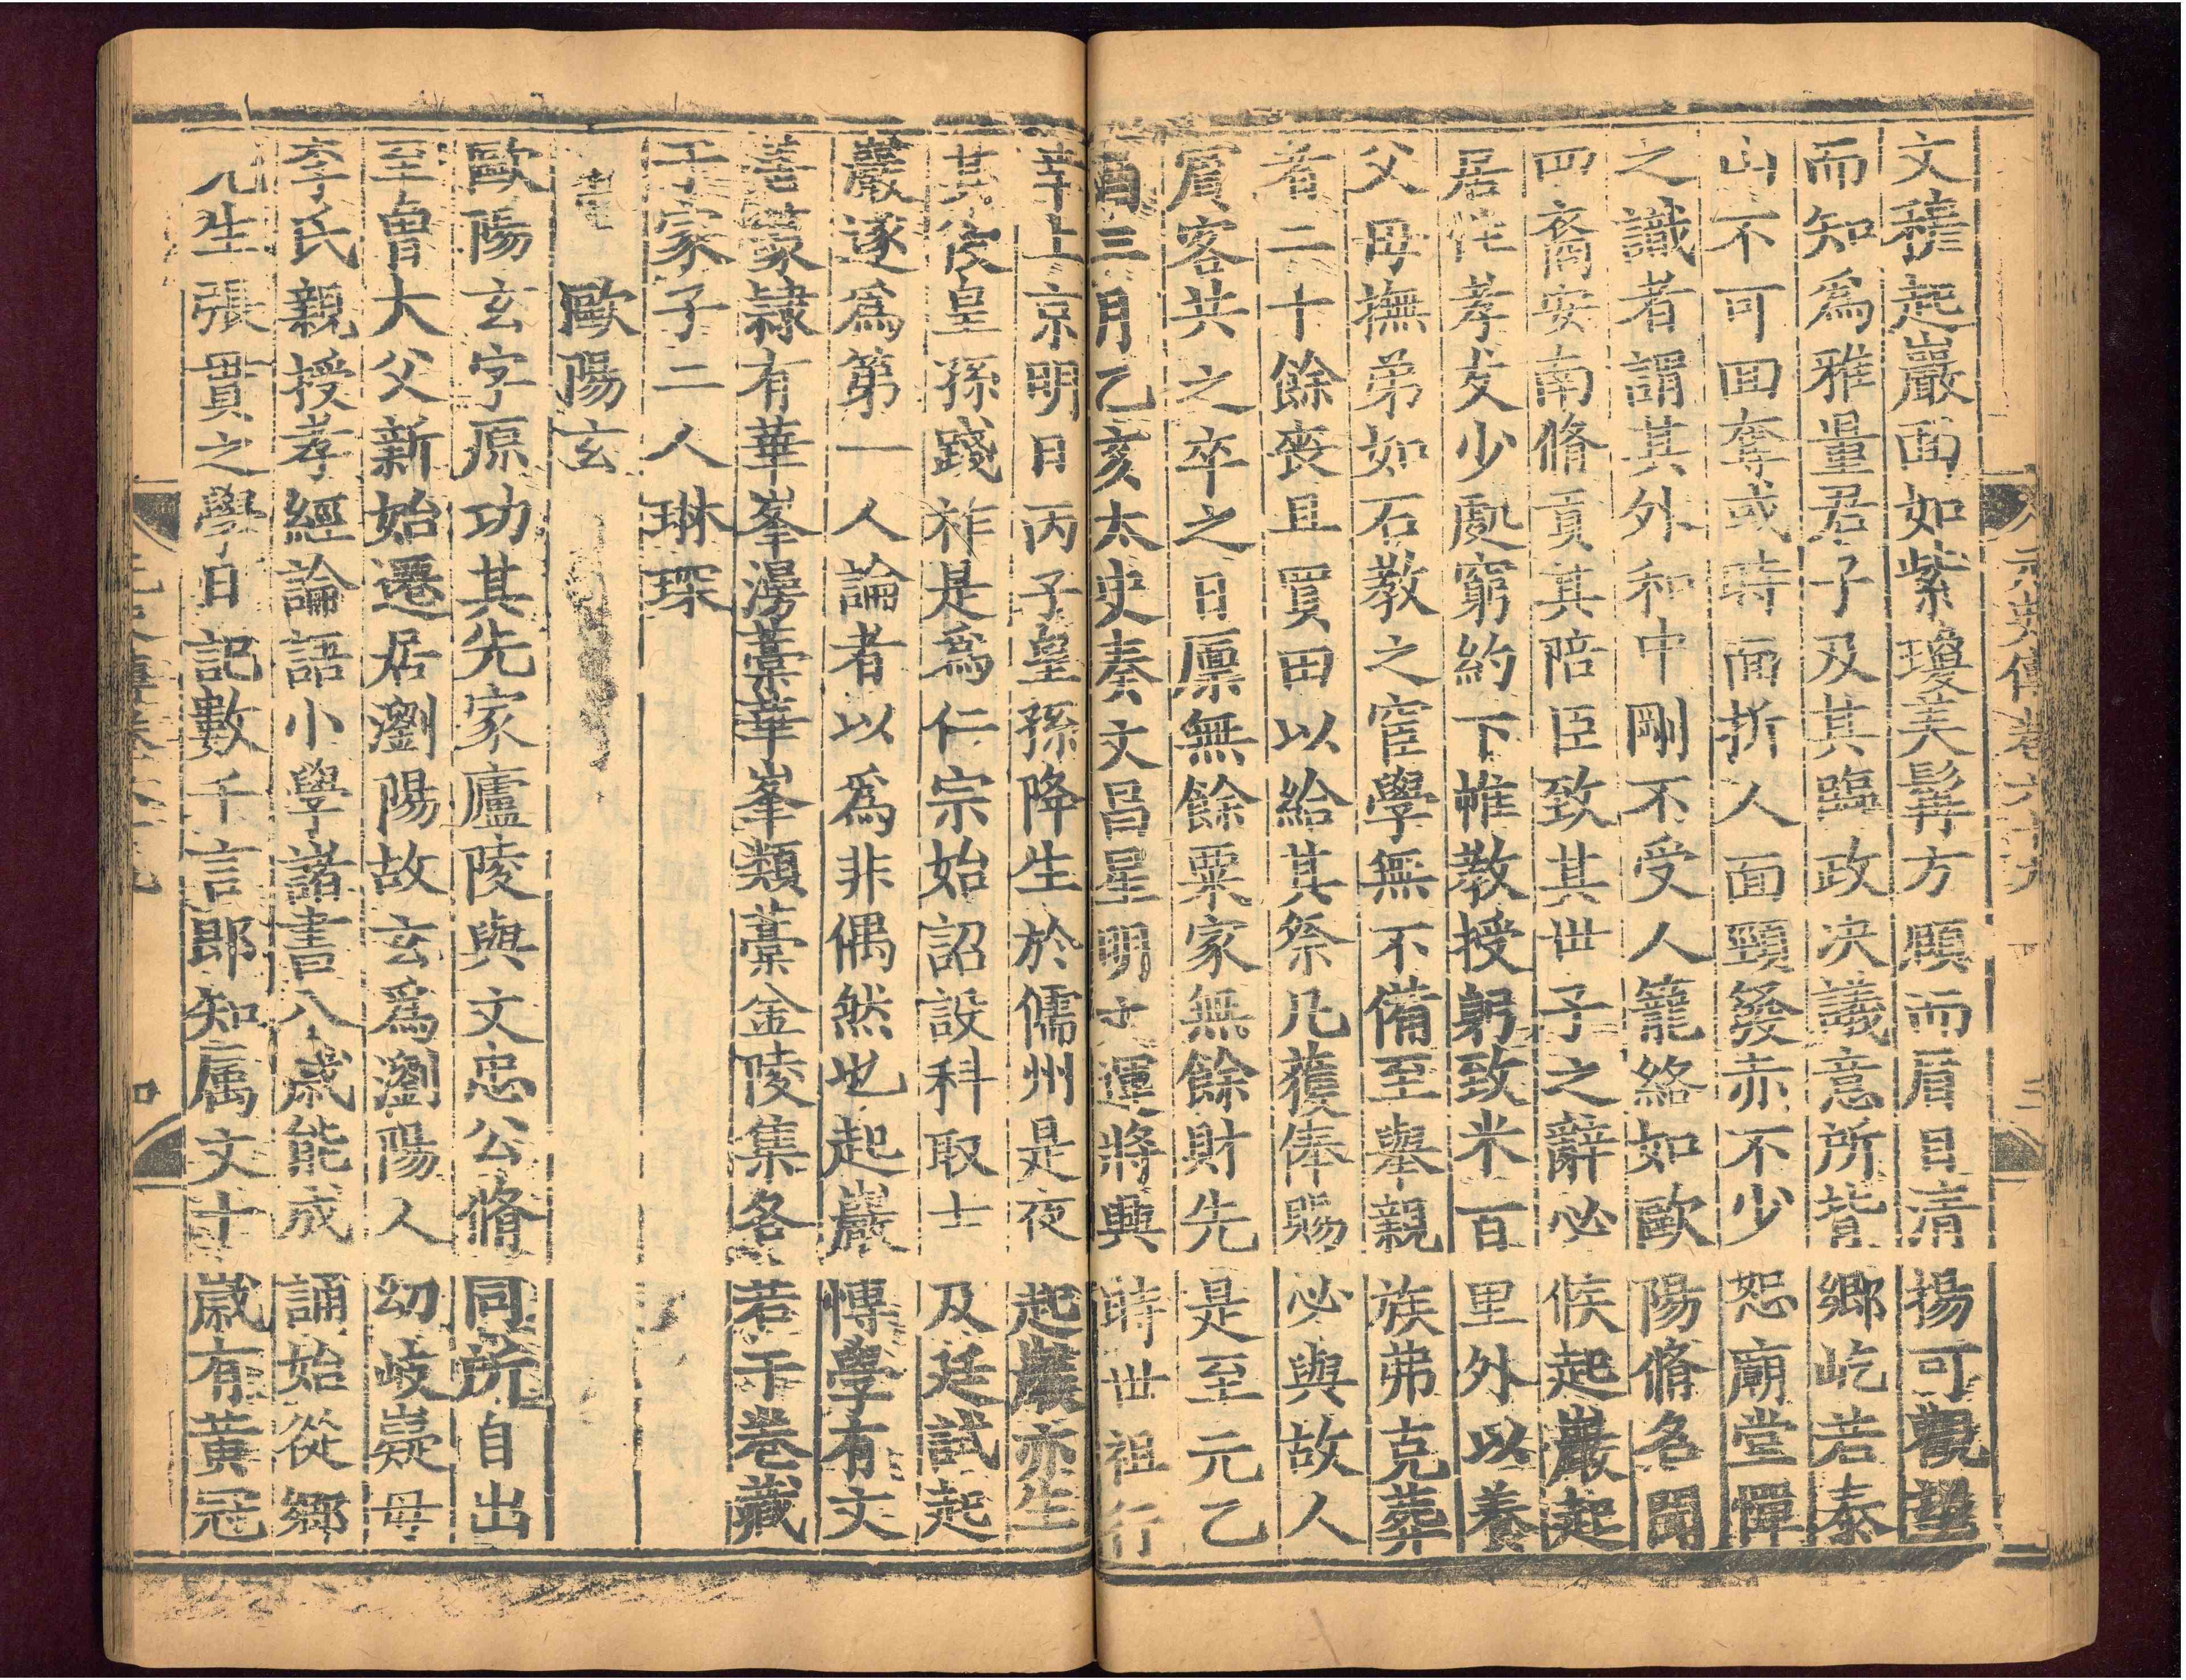 元史傳卷六十九 三
文穆起巖面如紫瓊美髯方頤而眉目清揚可觀望
而知為雅量君子及其臨政決議意所背鄉屹若泰
山不可回奪或時面折人面頸發赤不少恕廟堂憚
之識者謂其外和中剛不受人籠絡如歐陽脩名聞
四裔安南脩貢其陪臣致其世子之辭必候起巖起
居性孝友少處窮約下帷教授躬致米百里外以養
父母撫弟如石教之宦學無不備至舉親族弗克葬
者二十餘喪且買田以給其祭凡獲俸賜必與故人
賓客共之卒之日廩無餘粟家無餘財先是至元乙
酉三月乙亥太史奏文昌星明文運將興時世祖行
幸上京明日丙子皇孫降生於儒州是夜起巖亦生
其後皇孫踐祚是為仁宗始詔設科取士及廷試起
巖遂為第一人論者以為非偶然也起巖博學有文
善篆隸有華峯漫藁華峯類藁金陵集各若干卷藏
于家子二人琳琛
歐陽玄
歐陽玄字原功其先家廬陵與文忠公脩同所自出
至曾大父新始遷居瀏陽故玄為瀏陽人幼岐嶷母
李氏親授孝經論語小學諸書八歲能成誦始從鄉
先生張貫之學日記數千言即知属文十歲有黃冠